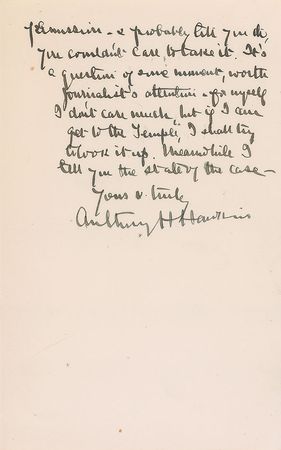 permission - & probably till you do
you couldn't care to take it. It's
a question of some moment, worth
journalist's attention - for myself
I don't care much, but if I can
get to the "Temple", I shall try
to look it up. Meanwhile I
tell you the state of the case -
Yours v. truly
Anthony H Hawkins